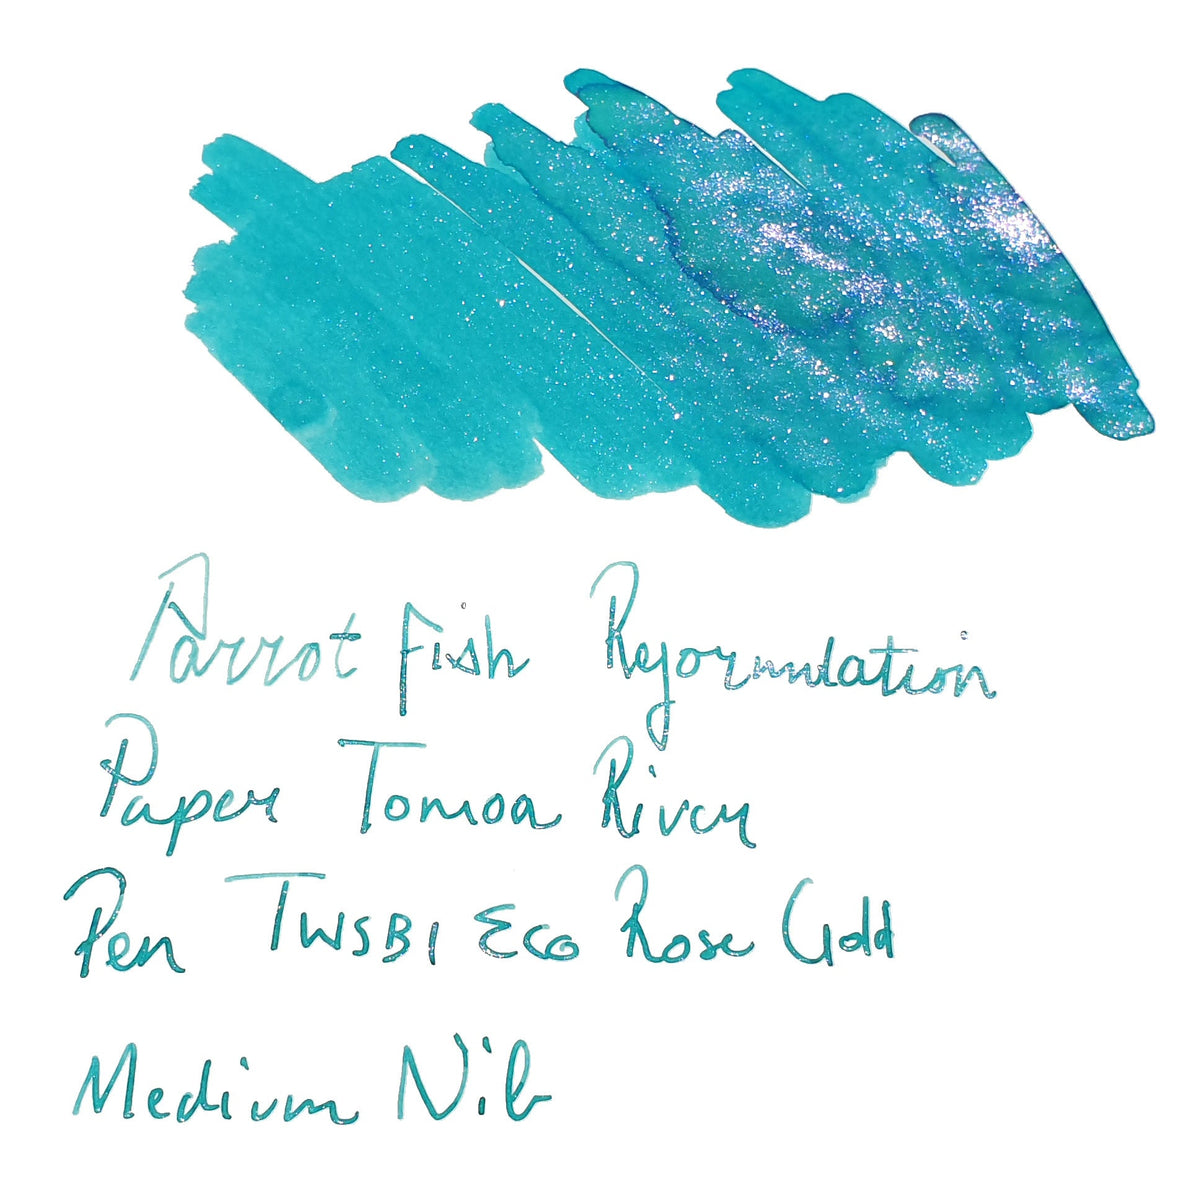 Parrot Fish Reformulation
Paper Tomoa River
Pen TWSBI Eco Rose Gold
Medium Nib